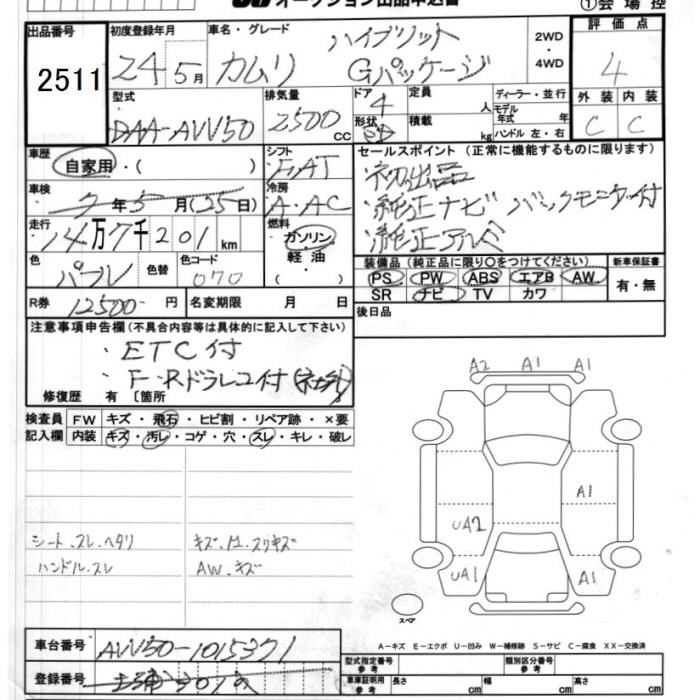 オークション出品申込書
①会場控
出品番号
2511
初度登録年月
24 5月
車名・グレード
ハイブリット
カムリ Gパッケージ
2WD
・
4WD
評価点
4
外装 内装
C C
型式
DAA-AVV50
排気量
2500
CC
ドア
4
形状
SD
定員
人
積載
kg
ディーラー・並行
モデル
年式 年
ハンドル 左・右
車歴
自家用・( )
シフト
FAT
セールスポイント (正常に機能するものに限ります)
初出品
純正ナビ バックモニター付
純正アルミ
車検
7年5月(25日)
冷房
A・AC
走行
14万7千201km
燃料
ガソリン
軽油
( )
色
パール
色替
色コード
070
装備品 (純正品に限り○をつけてください)
PS PW ABS エアB AW
SR ナビ TV カワ
新車保証書
有・無
R券
12500 円
名変期限 月 日
後日品
注意事項申告欄 (不具合内容等は具体的に記入して下さい)
・ETC付
・F・Rドラレコ付(社外)
修復歴 有 〔箇所
検査員
記入欄
FW キズ・飛石・ヒビ割・リペア跡・×要
内装 キズ・汚レ・コゲ・穴・スレ・キレ・破レ
シート、スレ、ヘタリ
ハンドル、スレ
AW、キズ
A2 A1 A1
A1
UA2
UA1
A1
スペア
A-キズ E-エクボ U-凹み W-補修跡 S-サビ C-腐食 XX-交換済
車台番号
AVV50-1015371
登録番号
型式指定番号
参考
類別区分番号
参考
車庫証明用
参考
長さ cm
幅 cm
高さ cm